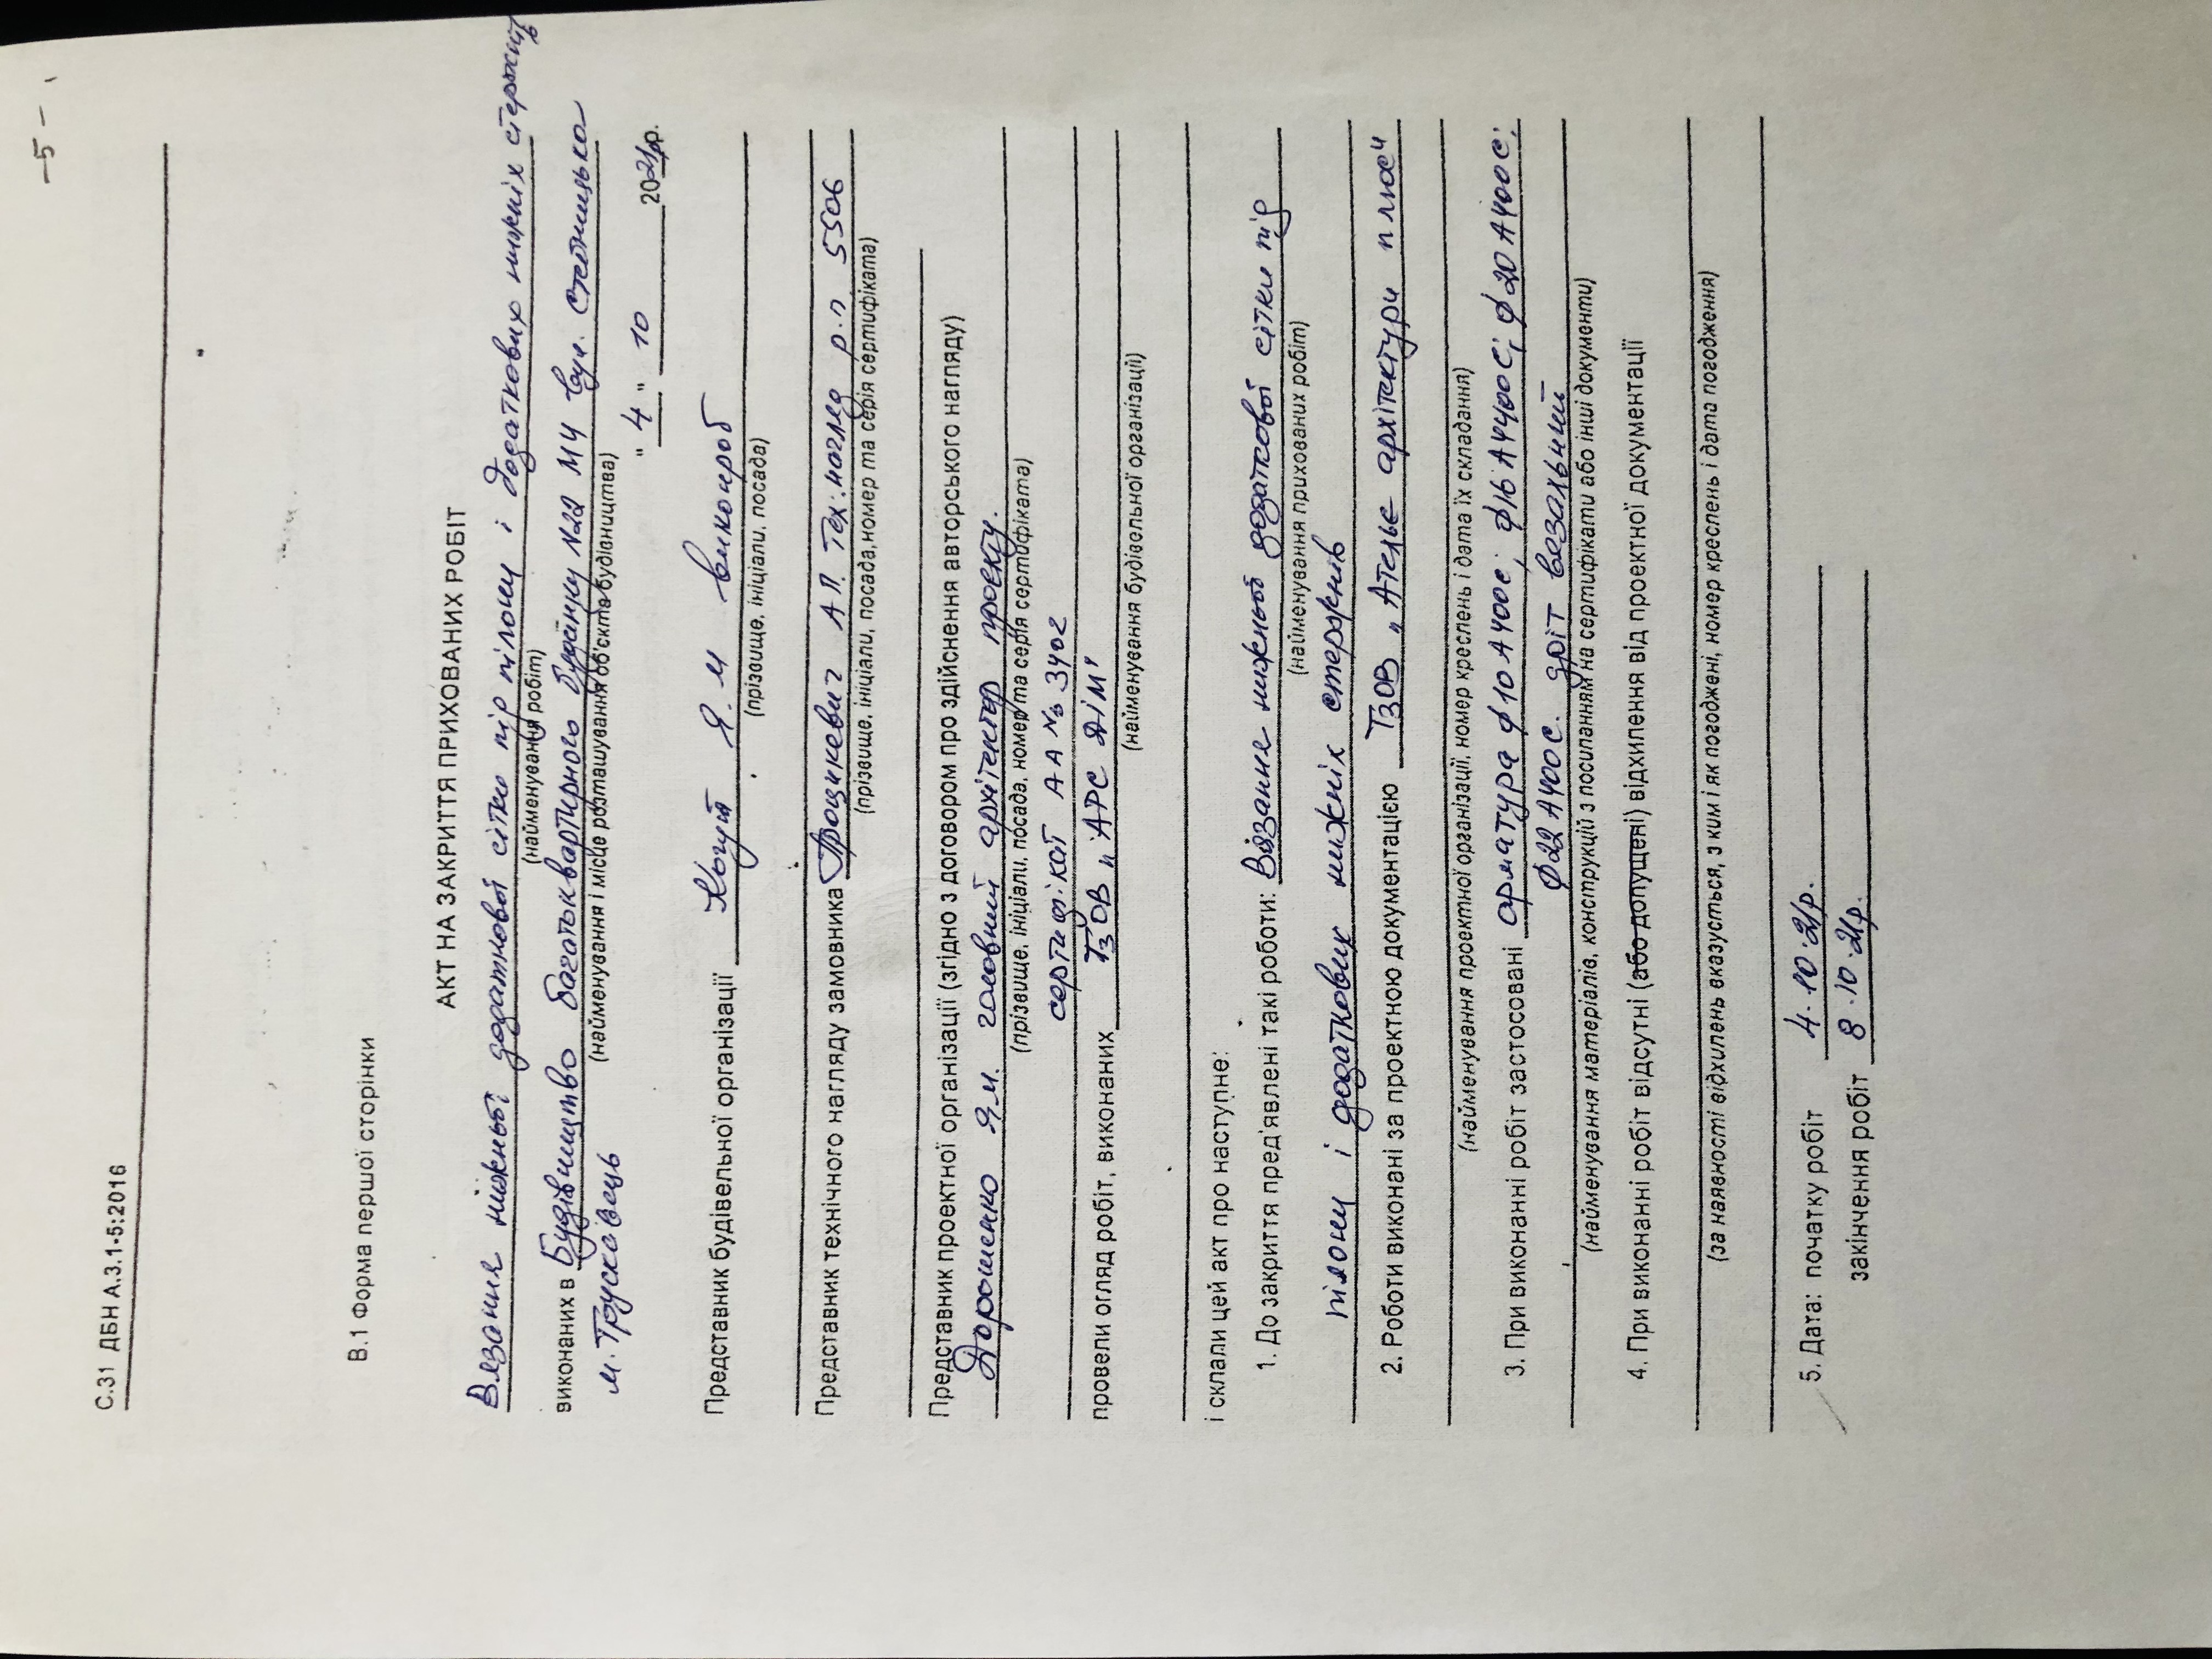 –5–
С.31 ДБН А.3.1-5:2016
В.1 Форма першої сторінки
АКТ НА ЗАКРИТТЯ ПРИХОВАНИХ РОБІТ
Вязання нижньої додаткової сітки під пілони і додаткових нижніх стержнів
(найменування робіт)
виконаних в Будівництво багатоквартирного будинку №22 М4 вул. Стебницька
(найменування і місце розташування об'єкта будівництва)
м. Трускавець
" 4 " 10 2021р.
Представник будівельної організації Когут Я. М виконроб
(прізвище, ініціали, посада)
Представник технічного нагляду замовника Процикевич А П. Тех. нагляд р.п 5506
(прізвище, ініціали, посада, номер та серія сертифіката)
Представник проектної організації (згідно з договором про здійснення авторського нагляду)
Дорошенко Я.М. головний архітектор проекту.
(прізвище, ініціали, посада, номер та серія сертифіката)
сертифікат АА №3402
провели огляд робіт, виконаних ТзОВ "АРС ДІМ"
(найменування будівельної організації)
і склали цей акт про наступне:
1. До закриття пред'явлені такі роботи: Вязання нижньої додаткової сітки під
(найменування прихованих робіт)
пілони і додаткових нижніх стержнів
2. Роботи виконані за проектною документацією ТзОВ "Ательє архітектури плюс"
(найменування проектної організації, номер креслень і дата їх складання)
3. При виконанні робіт застосовані арматура ф10 А400С; ф16 А400С; ф20 А400С;
ф22 А400С. дріт вязальний
(найменування матеріалів, конструкцій з посиланням на сертифікати або інші документи)
4. При виконанні робіт відсутні (або допущені) відхилення від проектної документації
(за наявності відхилень вказується, з ким і як погоджені, номер креслень і дата погодження)
5. Дата: початку робіт 4.10.21р.
закінчення робіт 8.10.21р.